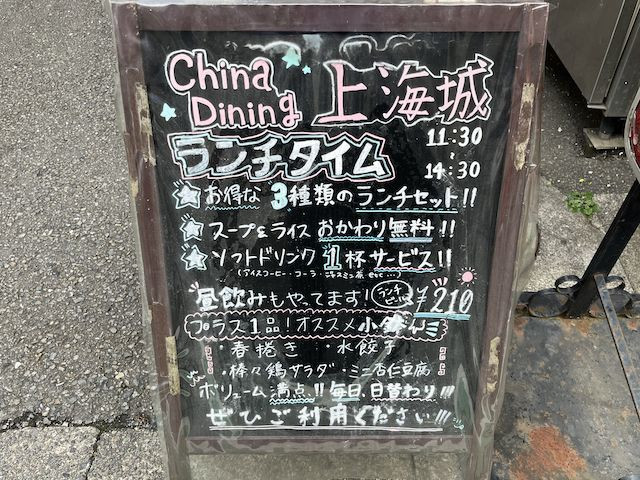 China Dining 上海城
ランチタイム 11:30 〜 14:30
お得な 3種類のランチセット!!
スープ&ライス おかわり無料!!
ソフトドリンク 1杯サービス!!
(アイスコーヒー・コーラ・ジャスミン茶 etc...)
昼飲みもやってます! ランチビール ¥210
プラス1品!オススメ小鉢
・春捲き ・水餃子
・棒々鶏サラダ ・ミニ杏仁豆腐
ボリューム満点!! 毎日、日替わり!!!
ぜひご利用ください!!!